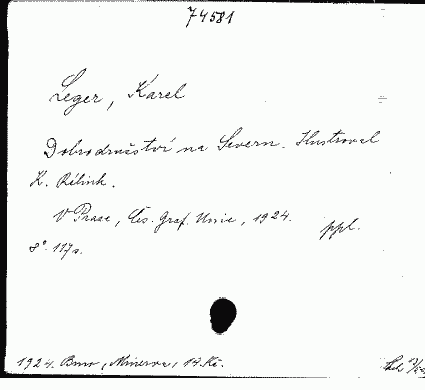 74581
Leger, Karel
Dobrodružství na Severu. Ilustroval
K. Rélink.
V Praze, Čes. Graf. Unie, 1924.
ppl.
8°. 117 s.
1924. Brno, Minerva, 17 Kč.